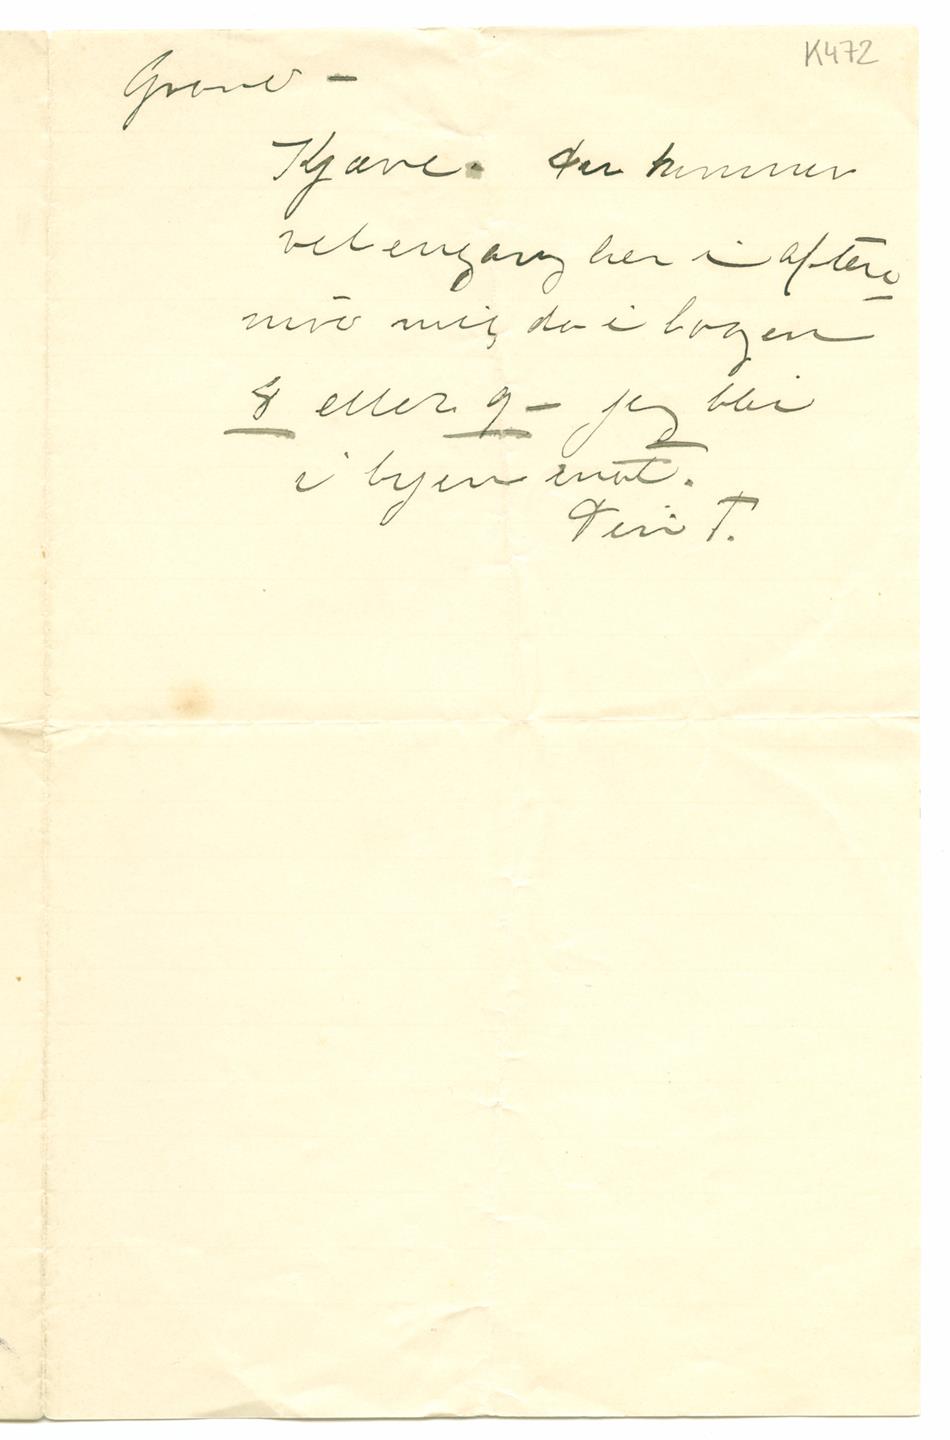 K472
Grand –
Kjære. Du kommer
vel engang her i aften
mød mig da i logen
8 eller 9 – jeg blir
i byen inat.
Din T.